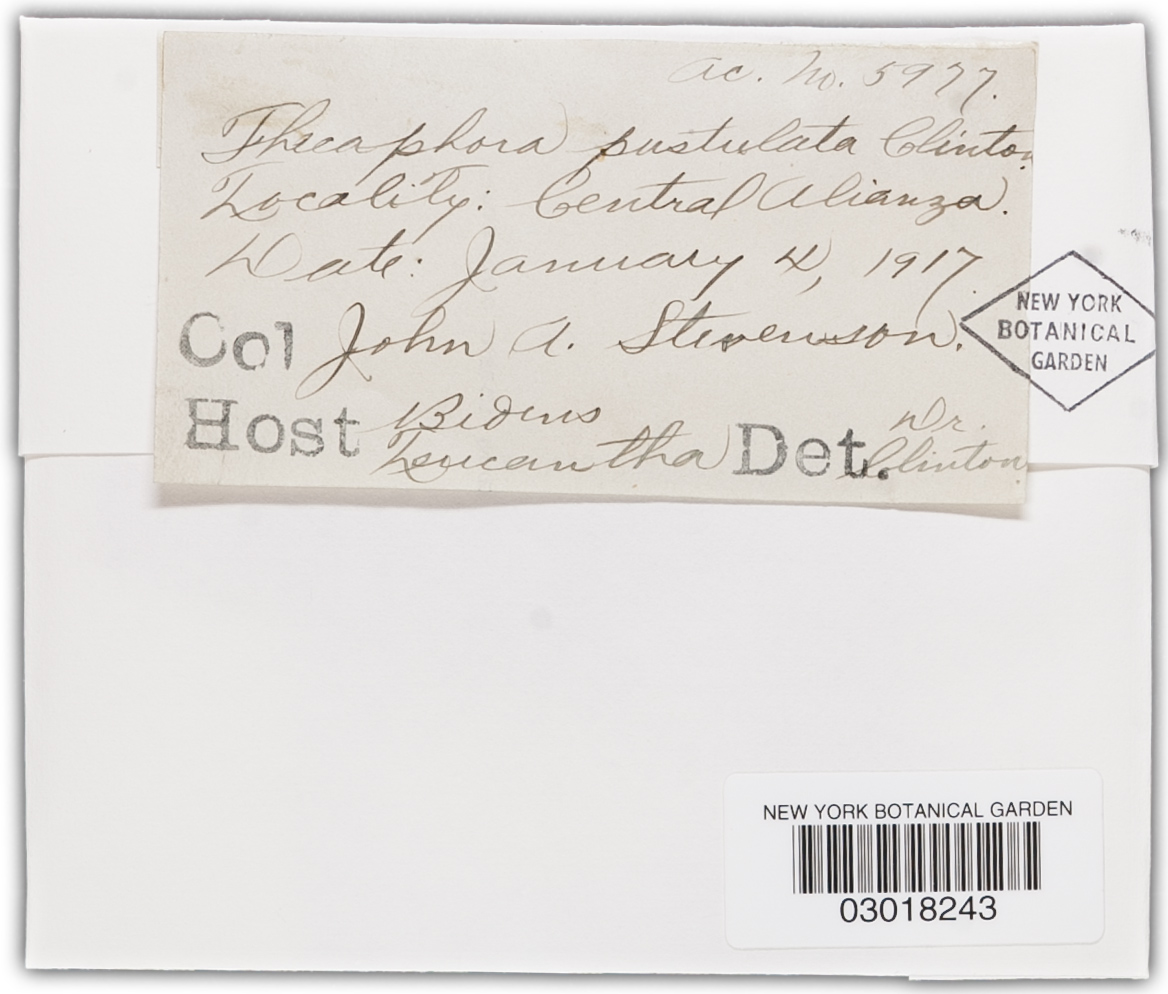 Ac. No. 5977.
Thecaphora pustulata Clinton
Locality: Central Alianza.
Date: January 4, 1917.
Col John A. Stevenson.
Host Bidens Leucantha Det. Dr. Clinton.
NEW YORK
BOTANICAL
GARDEN
NEW YORK BOTANICAL GARDEN
03018243